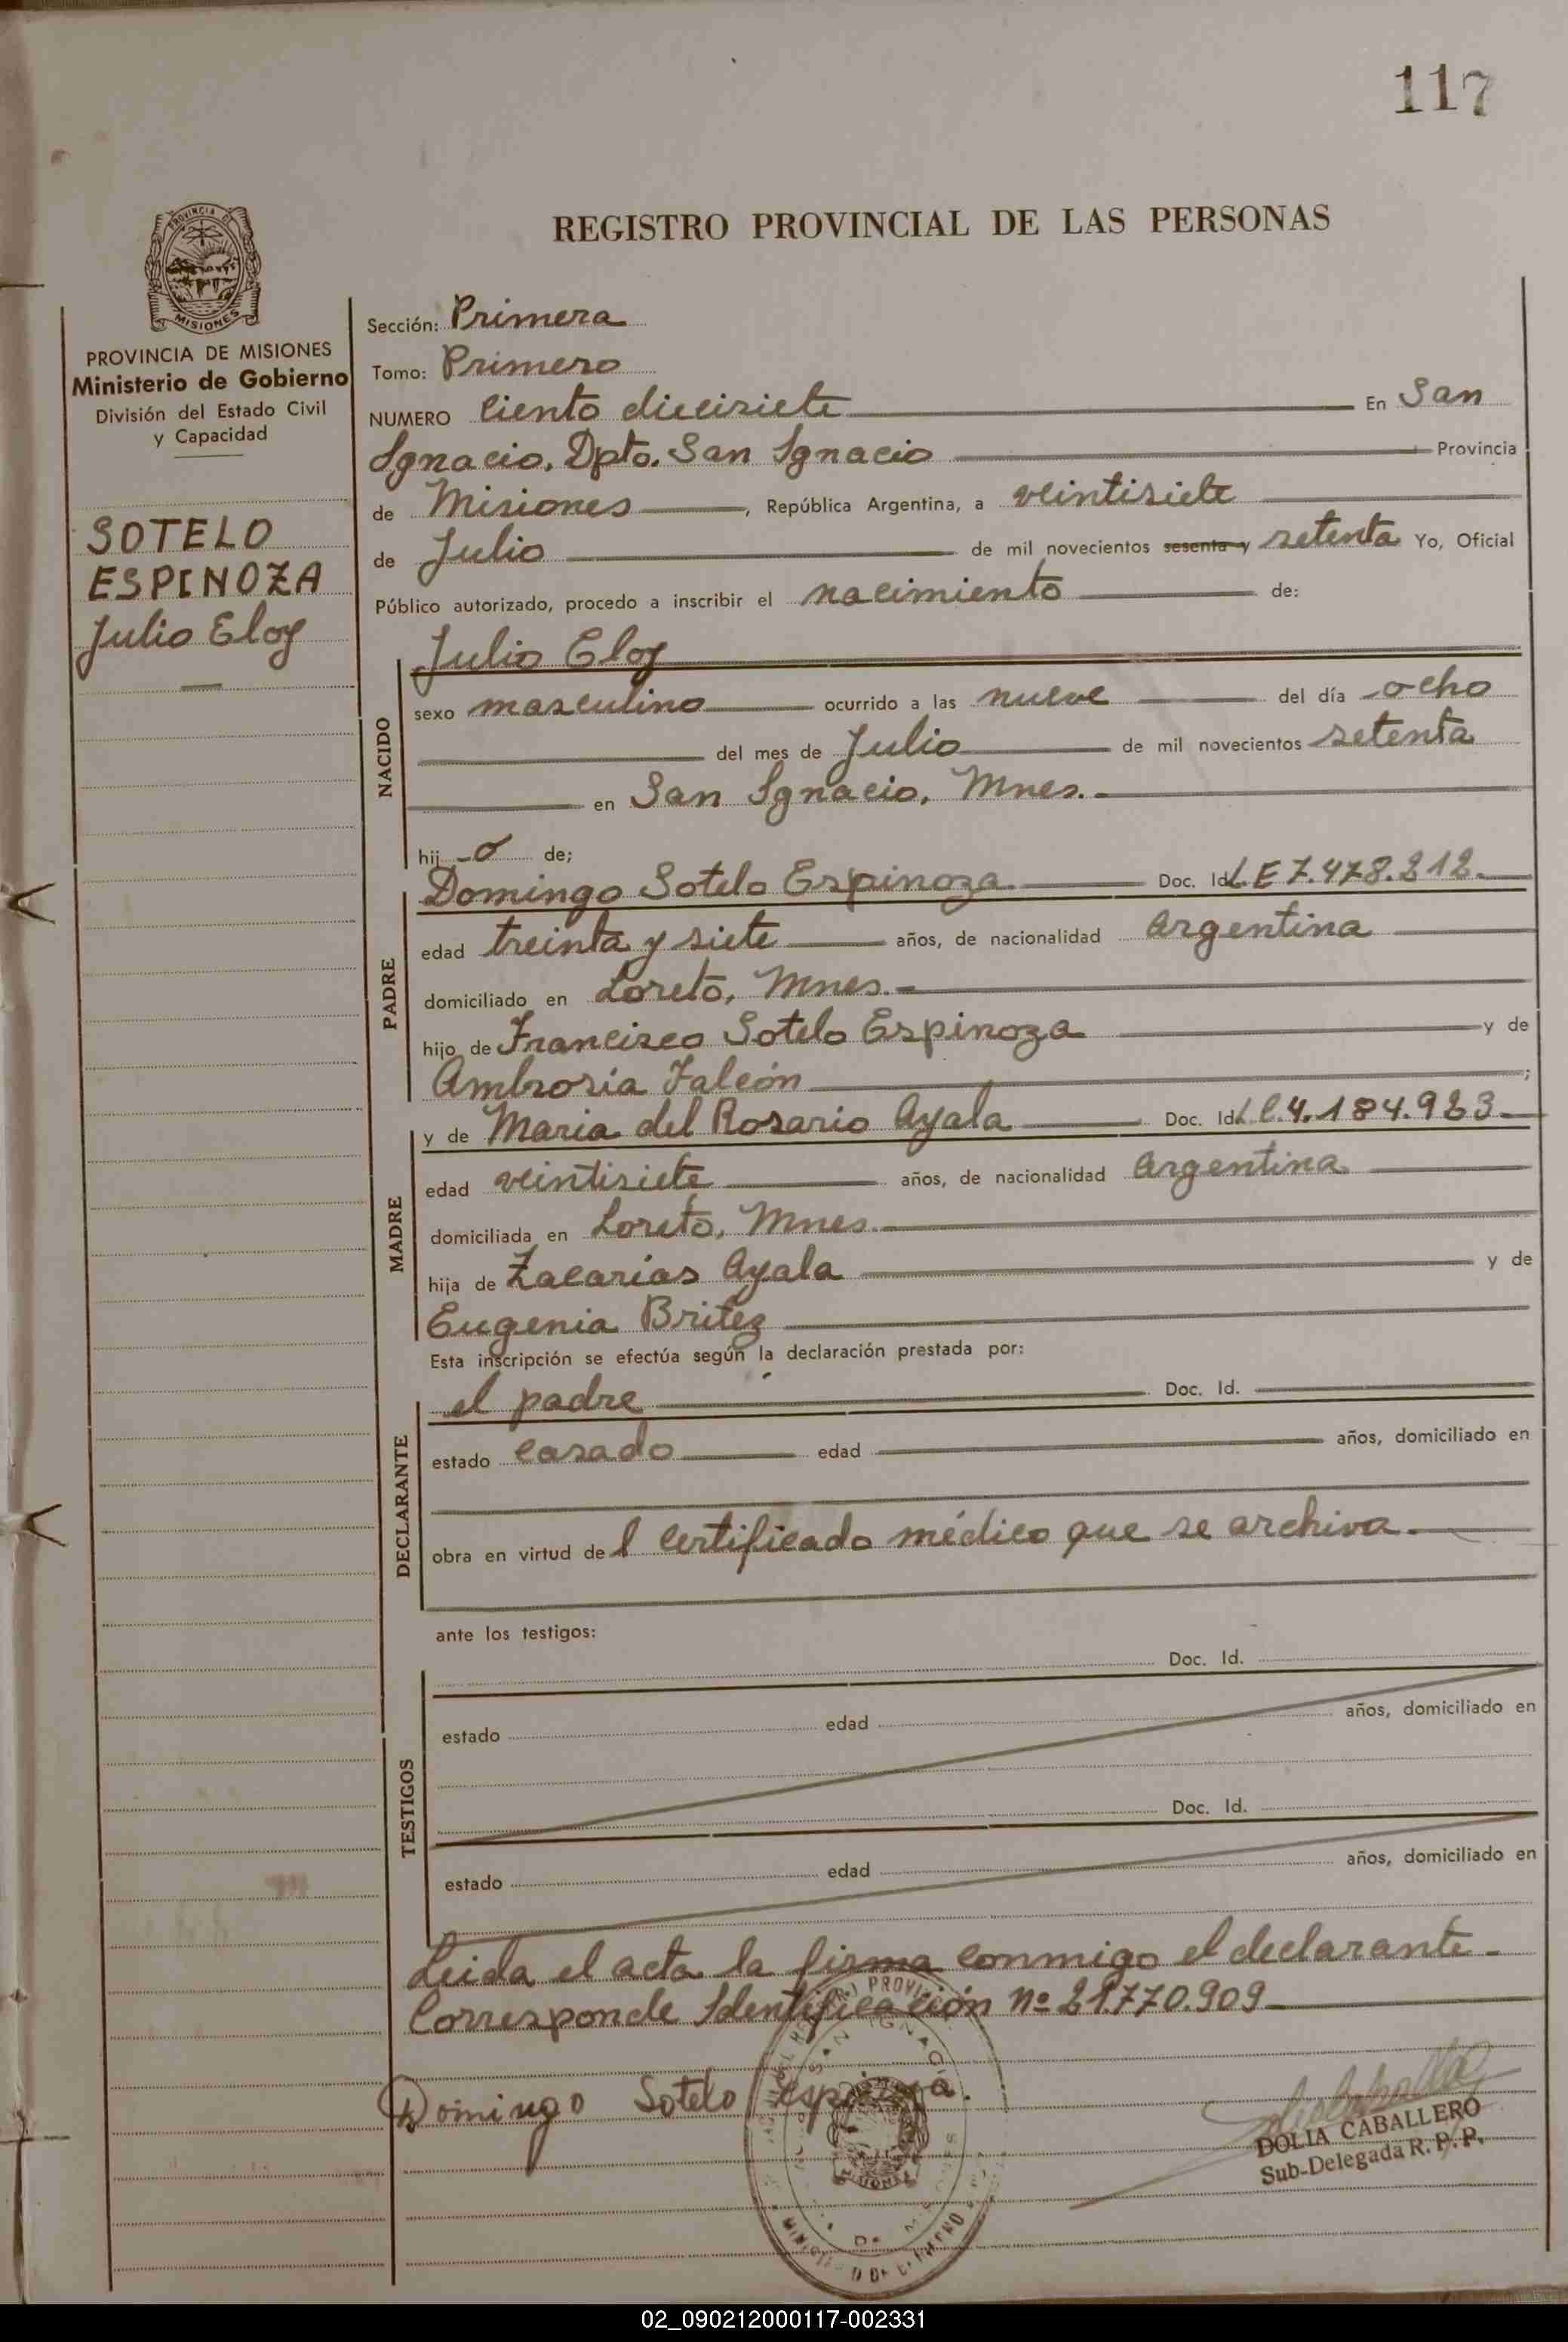 117
REGISTRO PROVINCIAL DE LAS PERSONAS
PROVINCIA DE
MISIONES
PROVINCIA DE MISIONES
Ministerio de Gobierno
División del Estado Civil
y Capacidad
SOTELO
ESPINOZA
Julio Eloy
Sección: Primera
Tomo: Primero
NUMERO Ciento diecisiete En San
Ignacio. Dpto. San Ignacio Provincia
de Misiones, República Argentina, a veintisiete
de Julio de mil novecientos sesenta y setenta Yo, Oficial
Público autorizado, procedo a inscribir el nacimiento de:
NACIDO
Julio Eloy
sexo masculino ocurrido a las nueve del día ocho
del mes de Julio de mil novecientos setenta
en San Ignacio, Mnes.
hij o de;
PADRE
Domingo Sotelo Espinoza Doc. Id. L.E 7.478.212.
edad treinta y siete años, de nacionalidad Argentina
domiciliado en Loreto, Mnes.
hijo de Francisco Sotelo Espinoza y de
Ambrosia Falcón ;
MADRE
y de Maria del Rosario Ayala Doc. Id. L.C.4.184.923
edad veintisiete años, de nacionalidad Argentina
domiciliada en Loreto, Mnes.
hija de Zacarias Ayala y de
Eugenia Britez
Esta inscripción se efectúa según la declaración prestada por:
DECLARANTE
el padre Doc. Id.
estado casado edad años, domiciliado en
obra en virtud de l certificado médico que se archiva.
ante los testigos:
TESTIGOS
Doc. Id.
estado edad años, domiciliado en
Doc. Id.
estado edad años, domiciliado en
Leida el acta la firma conmigo el declarante.
Corresponde Identificación nº 21.770.909
Domingo Sotelo Espinoza.
DOLIA CABALLERO
Sub-Delegada R. P. P.
02_090212000117-002331